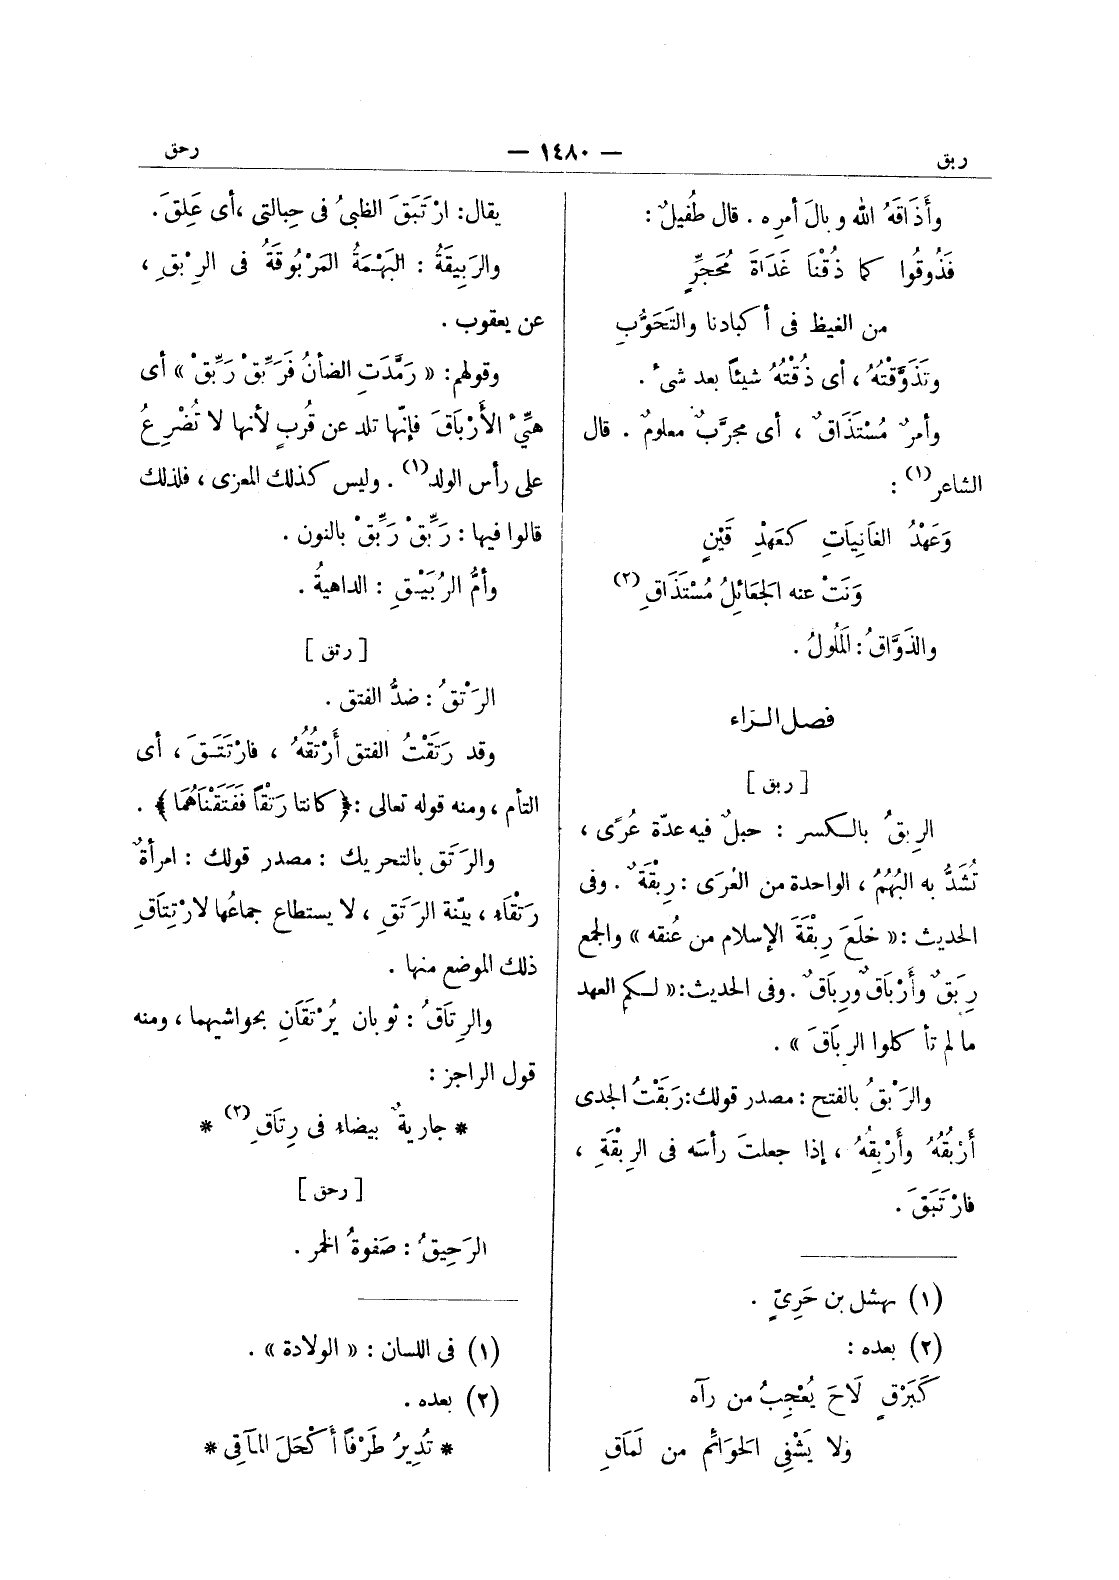 ربق
— ١٤٨٠ —
رحق
وأَذَاقَهُ الله وبالَ أمرِه . قال طُفيلٌ :
فَذُوقُوا كما ذُقْنَا غَدَاةَ مُحَجرٍّ
من الغيظ فى أكبادنا والتَحَوُّبِ
وتَذَوَّقْتُهُ ، أى ذُقْتُهُ شيئاً بعد شىء .
وأمرٌ مُسْتَذَاقٌ ، أى مجرَّبٌ معلومٌ . قال
الشاعر (١) :
وَعَهْدُ الغَانِيَاتِ كَعَهْدِ قَيْنٍ
وَنَتْ عنه الجَعَائِلُ مُسْتَذَاقِ (٢)
والذَوَّاقُ : المَلُولُ .
فصل الراء
[ ربق ]
الرِبقُ بالكسر : حبلٌ فيه عدّة عُرًى ،
تُشَدُّ به البُهُمُ ، الواحدة من العُرَى : رِبْقَةٌ . وفى
الحديث : « خلَعَ رِبْقَةَ الإسلام من عُنقه » والجمع
رِبَقٌ وأَرْبَاقٌ ورِبَاقٌ . وفى الحديث : « لكم العهد
ما لم تأكلوا الرِبَاقَ » .
والرَبْقُ بالفتح : مصدر قولك : رَبَقْتُ الجدى
أَرْبُقُهُ وأَرْبِقُهُ ، إذا جعلتَ رأسَه فى الرِبْقَةِ ،
فارْتَبَقَ .
(١) نهشل بن حَرِىّ .
(٢) بعده :
كَبَرْقٍ لَاحَ يُعْجِبُ من رآه
ولا يَشْفِى الحَوَائِم من لَمَاقِ
يقال : ارْتَبَقَ الظبىُ فى حِبالتى ، أى عَلِقَ .
والرَبِيقَةُ : البَهْمَةُ المَرْبُوقَةُ فى الرِبْقِ ،
عن يعقوب .
وقولهم : « رَمَّدَتِ الضأنُ فَرَبِّقْ رَبِّقْ » أى
هَيِّئْ الأَرْبَاقَ فإنّها تلد عن قُربٍ لأنها لا تُضْرِعُ
على رأس الولد (١) . وليس كذلك المعزى ، فلذلك
قالوا فيها : رَنِّقْ رَنِّقْ بالنون .
وأمُّ الرُبَيْقِ : الداهيةُ .
[ رتق ]
الرَتْقُ : ضدُّ الفتق .
وقد رَتَقْتُ الفتق أَرْتُقُهُ ، فارْتَتَقَ ، أى
التأم ، ومنه قوله تعالى : ﴿ كانتا رَتْقاً فَفَتَقْنَاهُمَا ﴾ .
والرَتَق بالتحريك : مصدر قولك : امرأةٌ
رَتْقَاء ، بيّنة الرَتَقِ ، لا يستطاع جماعُها لارْتِتَاقِ
ذلك الموضع منها .
والرِتَاقُ : ثوبان يُرْتَقَانِ بحواشيهما ، ومنه
قول الراجز :
* جاريةٌ بيضاء فى رِتَاقِ (٢) *
[ رحق ]
الرَحِيقُ : صَفوةُ الخمر .
(١) فى اللسان : « الولادة » .
(٢) بعده .
* تُدِيرُ طَرْفاً أَكْحَلَ المآقِى *